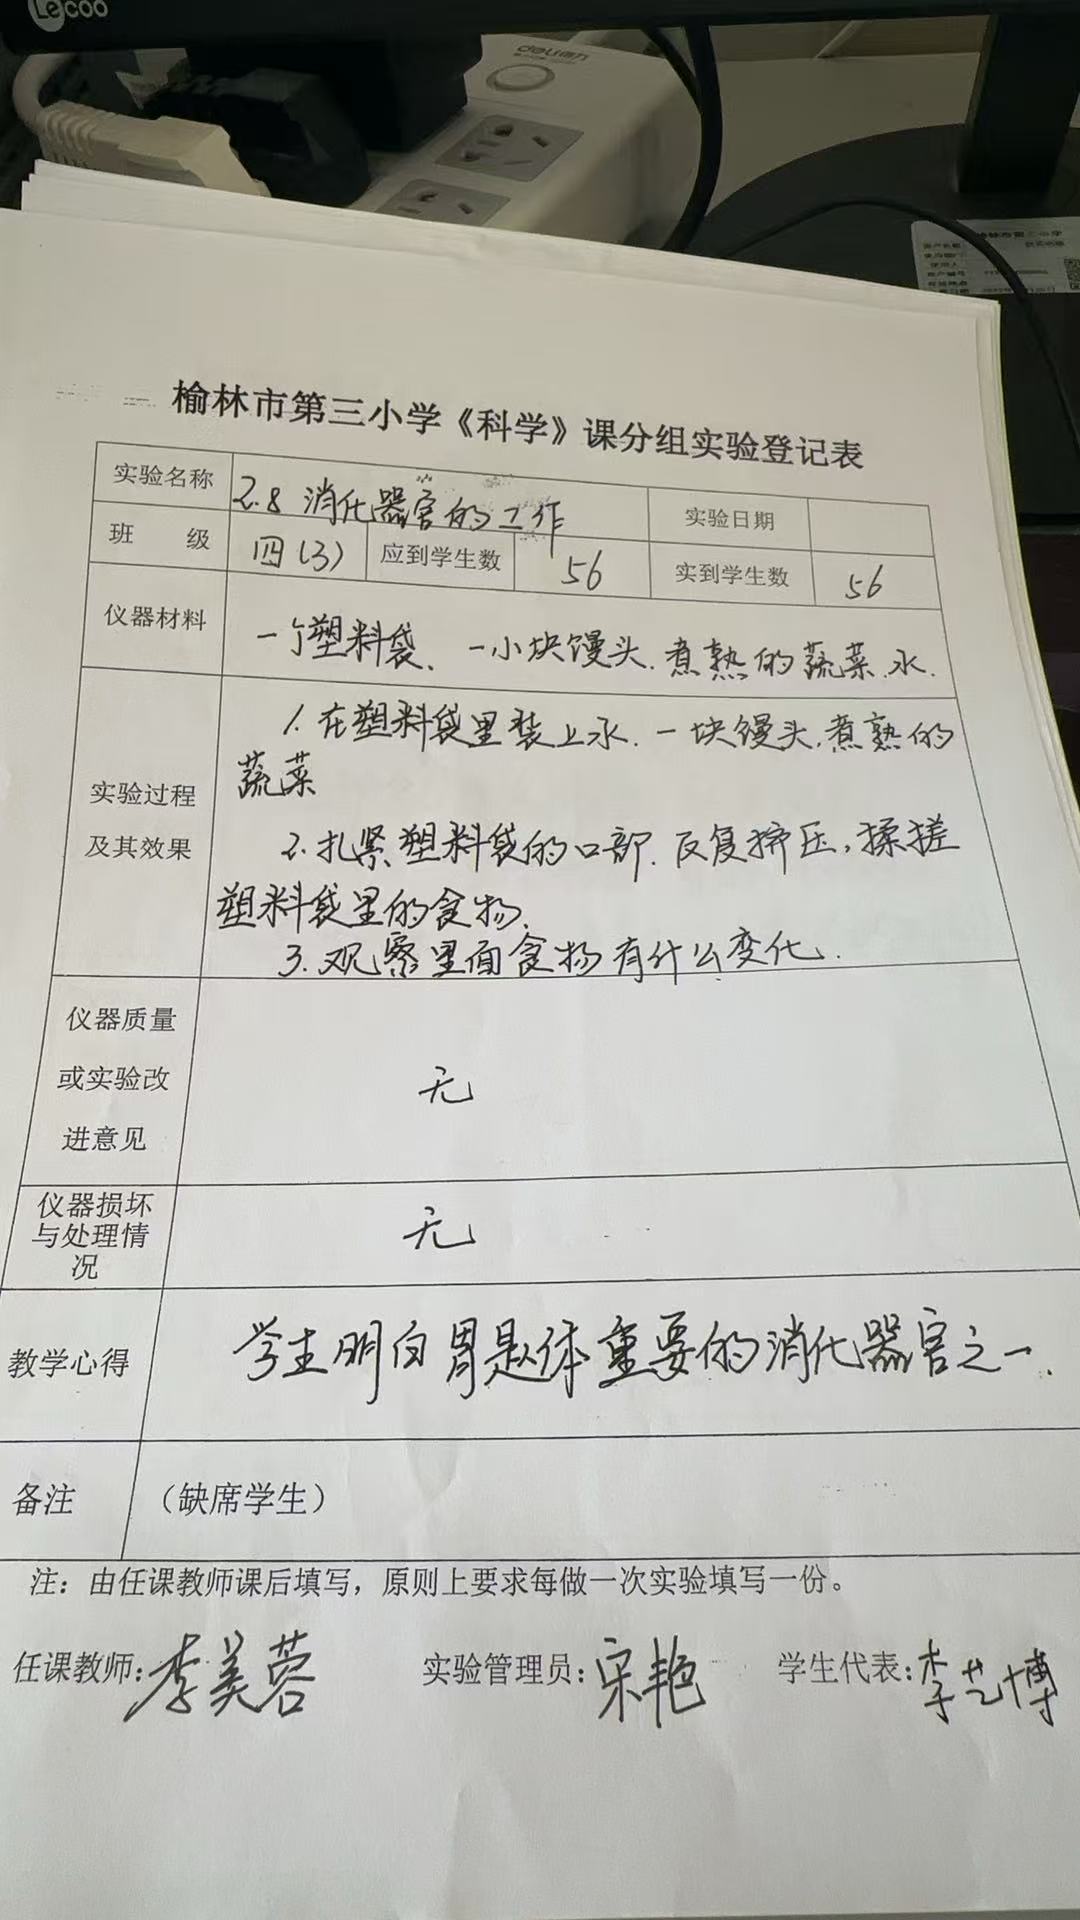 Lecoo
deli得力
榆林市第三小学
榆林市第三小学《科学》课分组实验登记表
实验名称 2.8 消化器官的工作 实验日期
班 级 四(3) 应到学生数 56 实到学生数 56
仪器材料 一个塑料袋、一小块馒头.煮熟的蔬菜.水.
1.在塑料袋里装上水.一块馒头.煮熟的
蔬菜
实验过程
及其效果
2.扎紧塑料袋的口部.反复挤压,揉搓
塑料袋里的食物.
3.观察里面食物有什么变化.
仪器质量
或实验改
进意见
无
仪器损坏
与处理情
况
无
教学心得 学生明白胃是人体重要的消化器官之一.
备注 (缺席学生)
注:由任课教师课后填写,原则上要求每做一次实验填写一份。
任课教师:李美蓉 实验管理员:宋艳 学生代表:李艺博